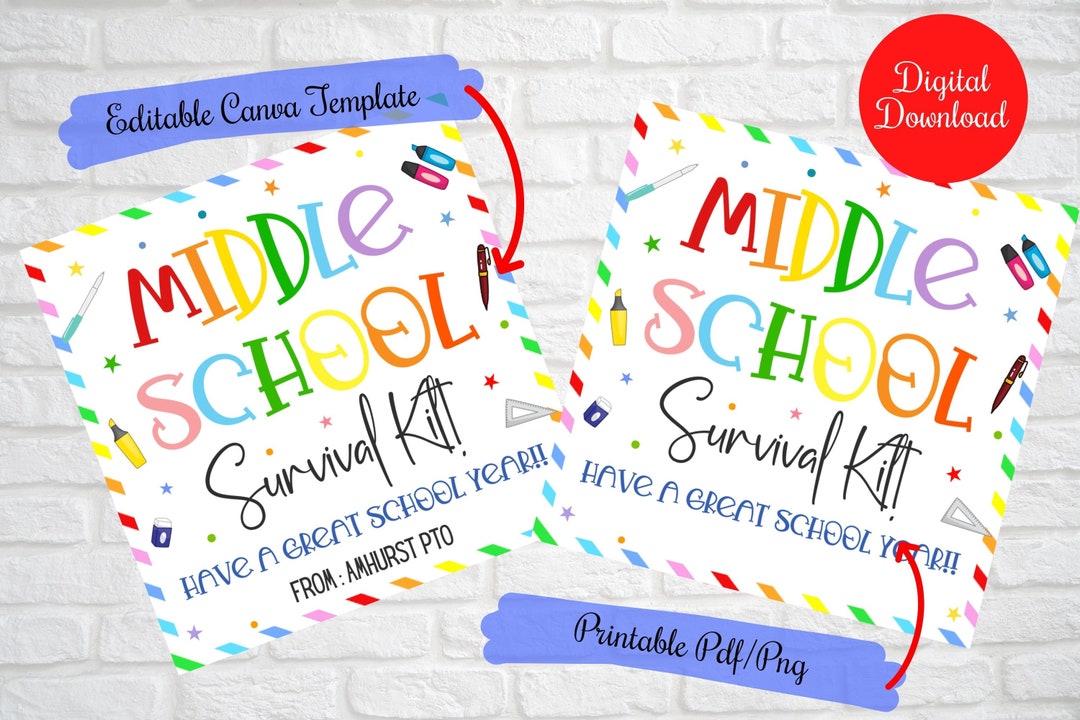 Editable Canva Template
Digital
Download
MIDDLE
SCHOOL
Survival Kit!
HAVE A GREAT SCHOOL YEAR!!
FROM : AMHURST PTO
MIDDLE
SCHOOL
Survival Kit!
HAVE A GREAT SCHOOL YEAR!!
Printable Pdf/Png